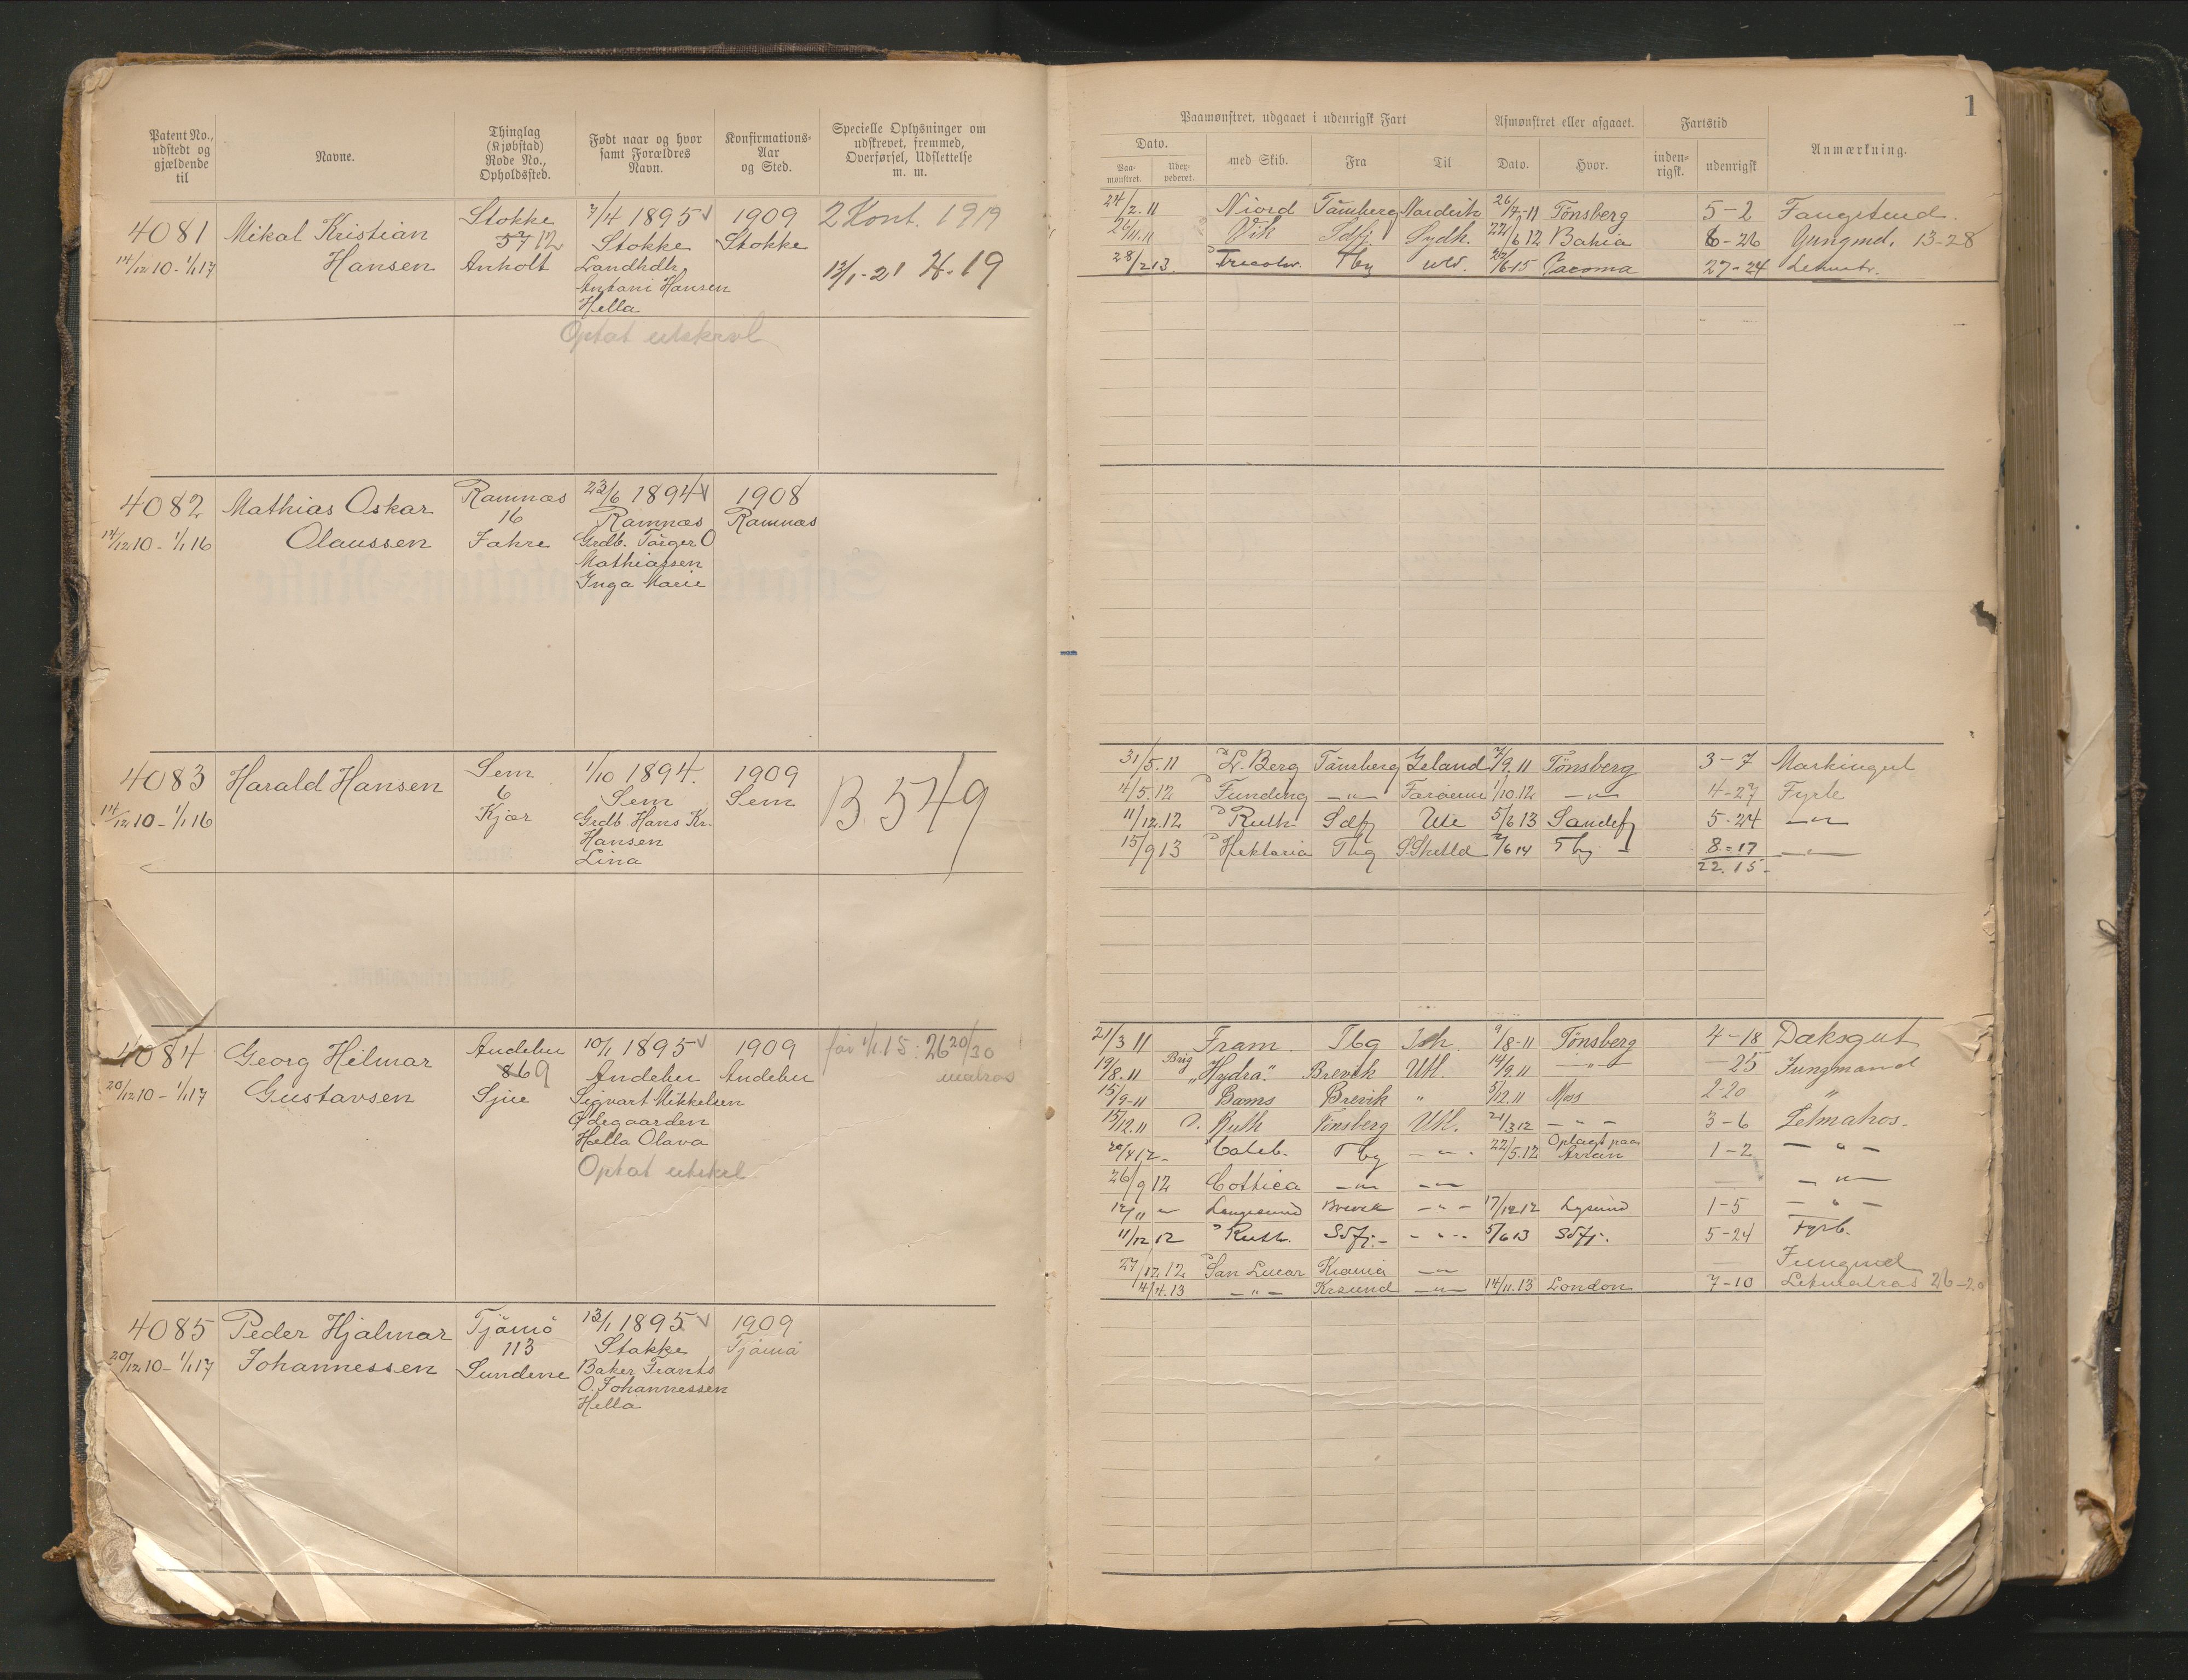 Patent No., udstedt og gjældende til
Navne.
Thinglag (Kjøbstad) Rode No., Opholdssted.
Født naar og hvor samt Forældres Navn.
Konfirmations-Aar og Sted.
Specielle Oplysninger om udskrevet, fremmed, Overførsel, Udslettelse m. m.
4081
14/12 10 - 1/1 17
Mikal Kristian
Hansen
Stokke
57 12
Anholt
7/4 1895 v
Stokke
Landhdlr
Antani Hansen
Hella
1909
Stokke
2 Kont. 1919
12/1-21 H. 19
Optat utskrvl
4082
14/12 10 - 1/1 16
Mathias Oskar
Olaussen
Ramnæs
16
Fahre
23/6 1894 v
Ramnæs
Grdb. Torger O
Mathiassen
Inga Marie
1908
Ramnæs
4083
14/12 10 - 1/1 16
Harald Hansen
Sem
6
Kjær
1/10 1894.
Sem
Grdb. Hans Kr.
Hansen
Lina
1909
Sem
B 549
4084
20/12 10 - 1/1 17
Georg Hilmar
Gustavsen
Andebu
869
Sjue
10/1 1895 v
Andebu
Segvart Mikkelsen
Ødegaarden
Hella Olava
1909
Andebu
før 1/1.15: 26 20/30
matros
Optat utskrl
4085
20/12 10 - 1/1 17
Peder Hjalmar
Johannessen
Tjømø
113
Sundene
13/1 1895 v
Stokke
Baker Frants
O. Johannessen
Hella
1909
Tjømø
1
Paamønstret, udgaaet i udenrigsk Fart
Afmønstret eller afgaaet.
Fartstid
Anmærkning.
Dato.
Paamønstret.
Udexpederet.
med Skib.
Fra
Til
Dato.
Hvor.
indenrigsk.
udenrigsk
24/2.11 Niord Tønsberg Nordish 26/7-11 Tønsberg 5-2 Fangstmd.
26/11.11 Vik Sdfj. Sydh. 22/6 12 Bahia 6-26 Yungmd. 13-28
28/2 13. Tricolor. Tbg utl. 22/6 15 Tacoma 27-24 Letmatr.
31/5.11 L. Berg Tønsberg Island 7/9.11 Tønsberg 3-7 Maskingut
4/5.12 Funding -"- Færøerne 1/10.12 -"- 4-27 Fyrb
11/12.12 Ruth Sdfj Ute 5/6 13 Sandefj 5-24 -"-
15/9 13 Hektoria Tbg S. Shetld 2/6 14 Tbg 8-17 -"-
22.15-
21/3 11 Fram. Tbg Ish. 9/8-11 Tønsberg 4-18 Dæksgut
19/8.11 Brig "Hydra". Brevik Utl. 14/9.11 -"- -25 Jungmand
15/9-11 Bams Brevik " 5/12.11 Moss 2-20 "
15/12.11 D. Ruth Tønsberg Utl. 21/3 12 -"- 3-6 Letmatros.
20/4 12- Caleb. Tbg -"- 22/5.12 Oplagt paa Arran 1-2 -"-
26/9 12 Cottica -"- -"- — -"-
12/11 " Langesund Brevik -"- 17/12 12 Lysund 1-5 -"-
11/12 12 Ruth. Sdfj.- -"- 5/6 13 Sdfj. 5-24 Fyrb.
27/12 12 San Lucar Krania -"- — Jungmd
4/4.13 -"- Krsund -"- 14/11.13 London 7-10 Letmatros 26-20